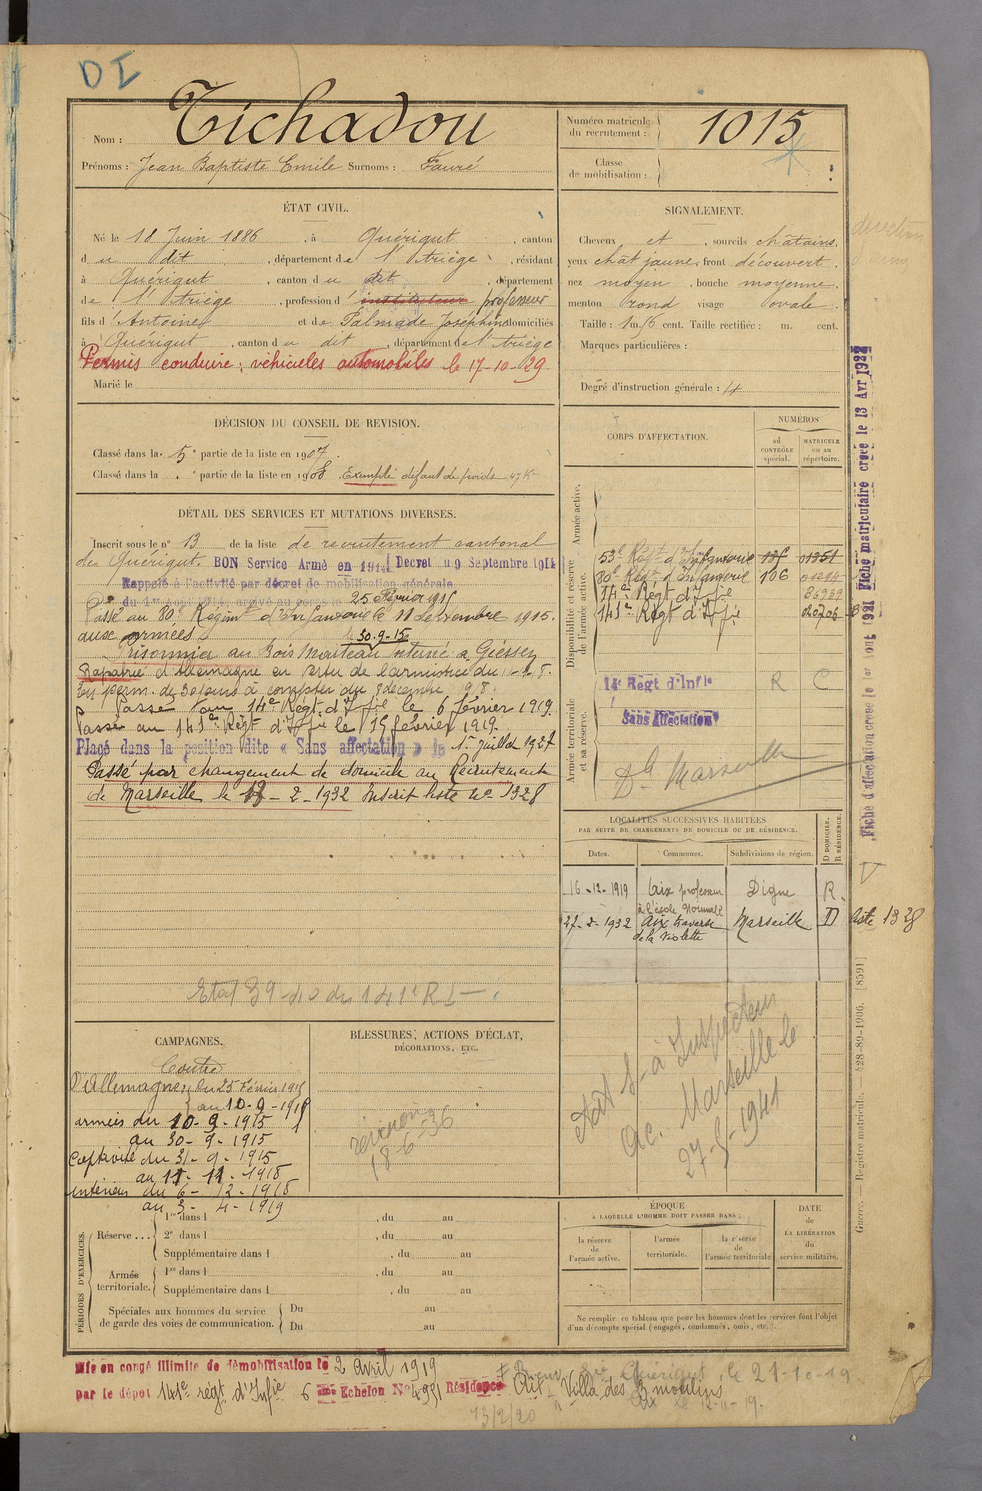 DI
Nom : Tichadou
Prénoms : Jean Baptiste Emile Surnoms : Fauré
Numéro matricule du recrutement : 1015
Classe de mobilisation :
ÉTAT CIVIL.
Né le 18 Juin 1886, à Quérigut, canton
du dit, département de l'Ariège, résidant
à Quérigut, canton du dit, département
de l'Ariège, profession d instituteur professeur
fils d'Antoine et de Palmade Joséphine domiciliés
à Quérigut, canton du dit, département de l'Ariège
Permis conduire : véhicules automobiles le 17-10-29
Marié le
SIGNALEMENT.
Cheveux et, sourcils châtains,
yeux chât jaune, front découvert,
nez moyen, bouche moyenne,
menton rond visage ovale.
Taille : 1m 16 cent. Taille rectifiée : m. cent.
Marques particulières :
Degré d'instruction générale : 4
DÉCISION DU CONSEIL DE REVISION.
Classé dans la 5e partie de la liste en 1907.
Classé dans la . e partie de la liste en 1908. Exempté défaut de poids 47 K
DÉTAIL DES SERVICES ET MUTATIONS DIVERSES.
Inscrit sous le n° 13 de la liste de recrutement cantonal
de Quérigut. BON Service Armé en 1914 Decret du 9 Septembre 1914
Rappelé à l'activité par décret de mobilisation générale
du 1er août 1914, arrivé au corps le 25 Février 1915
Passé au 80e Régimt d'Infanterie le 11 Septembre 1915.
aux armées
30-9-15
Prisonnier au Bois Marteau Interné à Giessen
Rapatrié d'Allemagne en vertu de l'armistice du
En perm. de 30 jours à compter du 8 décembre 1918.
Passé au 14e Régt d'Inf ie le 6 février 1919.
Passé au 141e Régt d'Inf ie le 15 février 1919.
Placé dans la position dite « Sans affectation » le 1er juillet 1927
Passé par changement de domicile au Recrutement
de Marseille le 13-2-1932 Inscrit liste no 1328
Etat 39-40 du 141e RI
CORPS D'AFFECTATION.
NUMÉROS
AU CONTRÔLE spécial.
MATRICULE ou au répertoire.
Armée active.
Disponibilité et réserve de l'armée active.
53e Régt d'Infanterie
80e Régt d'Infanterie 106
14e Régt d'Inf ie
141e Régt d'Inf ie
Armée territoriale et sa réserve.
14e Régt d'Inf ie R C
Sans Affectation
Marseille
Fiche d'affectation créée le 1er Aout 1921 Fiche matriculaire créée le 13 Avr 1922
LOCALITÉS SUCCESSIVES HABITÉES
PAR SUITE DE CHANGEMENTS DE DOMICILE OU DE RÉSIDENCE.
Dates. Communes. Subdivisions de région. D DOMICILE. R RÉSIDENCE.
16-12-1919 Aix professeur à l'école Normale Digne R.
27-2-1932 Aix traverse de la Violette Marseille D liste 1328
à Inspecteur
Ac. Marseille le
1941
CAMPAGNES.
Contre
l'Allemagne, du 25 Février 1915
au 10-9-1915
armées du 10-9-1915
au 30-9-1915
Captivité du 31-9-1915
au 11-11-1918
Intérieur du 6-12-1918
au 3-4-1919
BLESSURES, ACTIONS D'ÉCLAT,
DÉCORATIONS, ETC.
18-6-36
PÉRIODES D'EXERCICES.
Réserve ... 1re dans l , du au
2e dans l , du au
Supplémentaire dans l , du au
Armée territoriale. 1re dans l , du au
Supplémentaire dans l , du au
Spéciales aux hommes du service de garde des voies de communication. Du au
Du au
ÉPOQUE
A LAQUELLE L'HOMME DOIT PASSER DANS :
la réserve de l'armée active. l'armée territoriale. la réserve de l'armée territoriale
DATE de LA LIBÉRATION du service militaire.
Ne remplir ce tableau que pour les hommes dont les services font l'objet
d'un décompte spécial (engagés, condamnés, omis, etc.).
Guerre. — Registre matricule. 428-89-1906. [8591]
Mis en congé illimité de démobilisation le 2 Avril 1919
par le dépôt 141e régt d'Infie 6 ème Echelon N° 4981 Résidence Aix Villa des 3 moulins
Quérigut, le 21-10-19
13/2/20
Aix le 12-11-19.